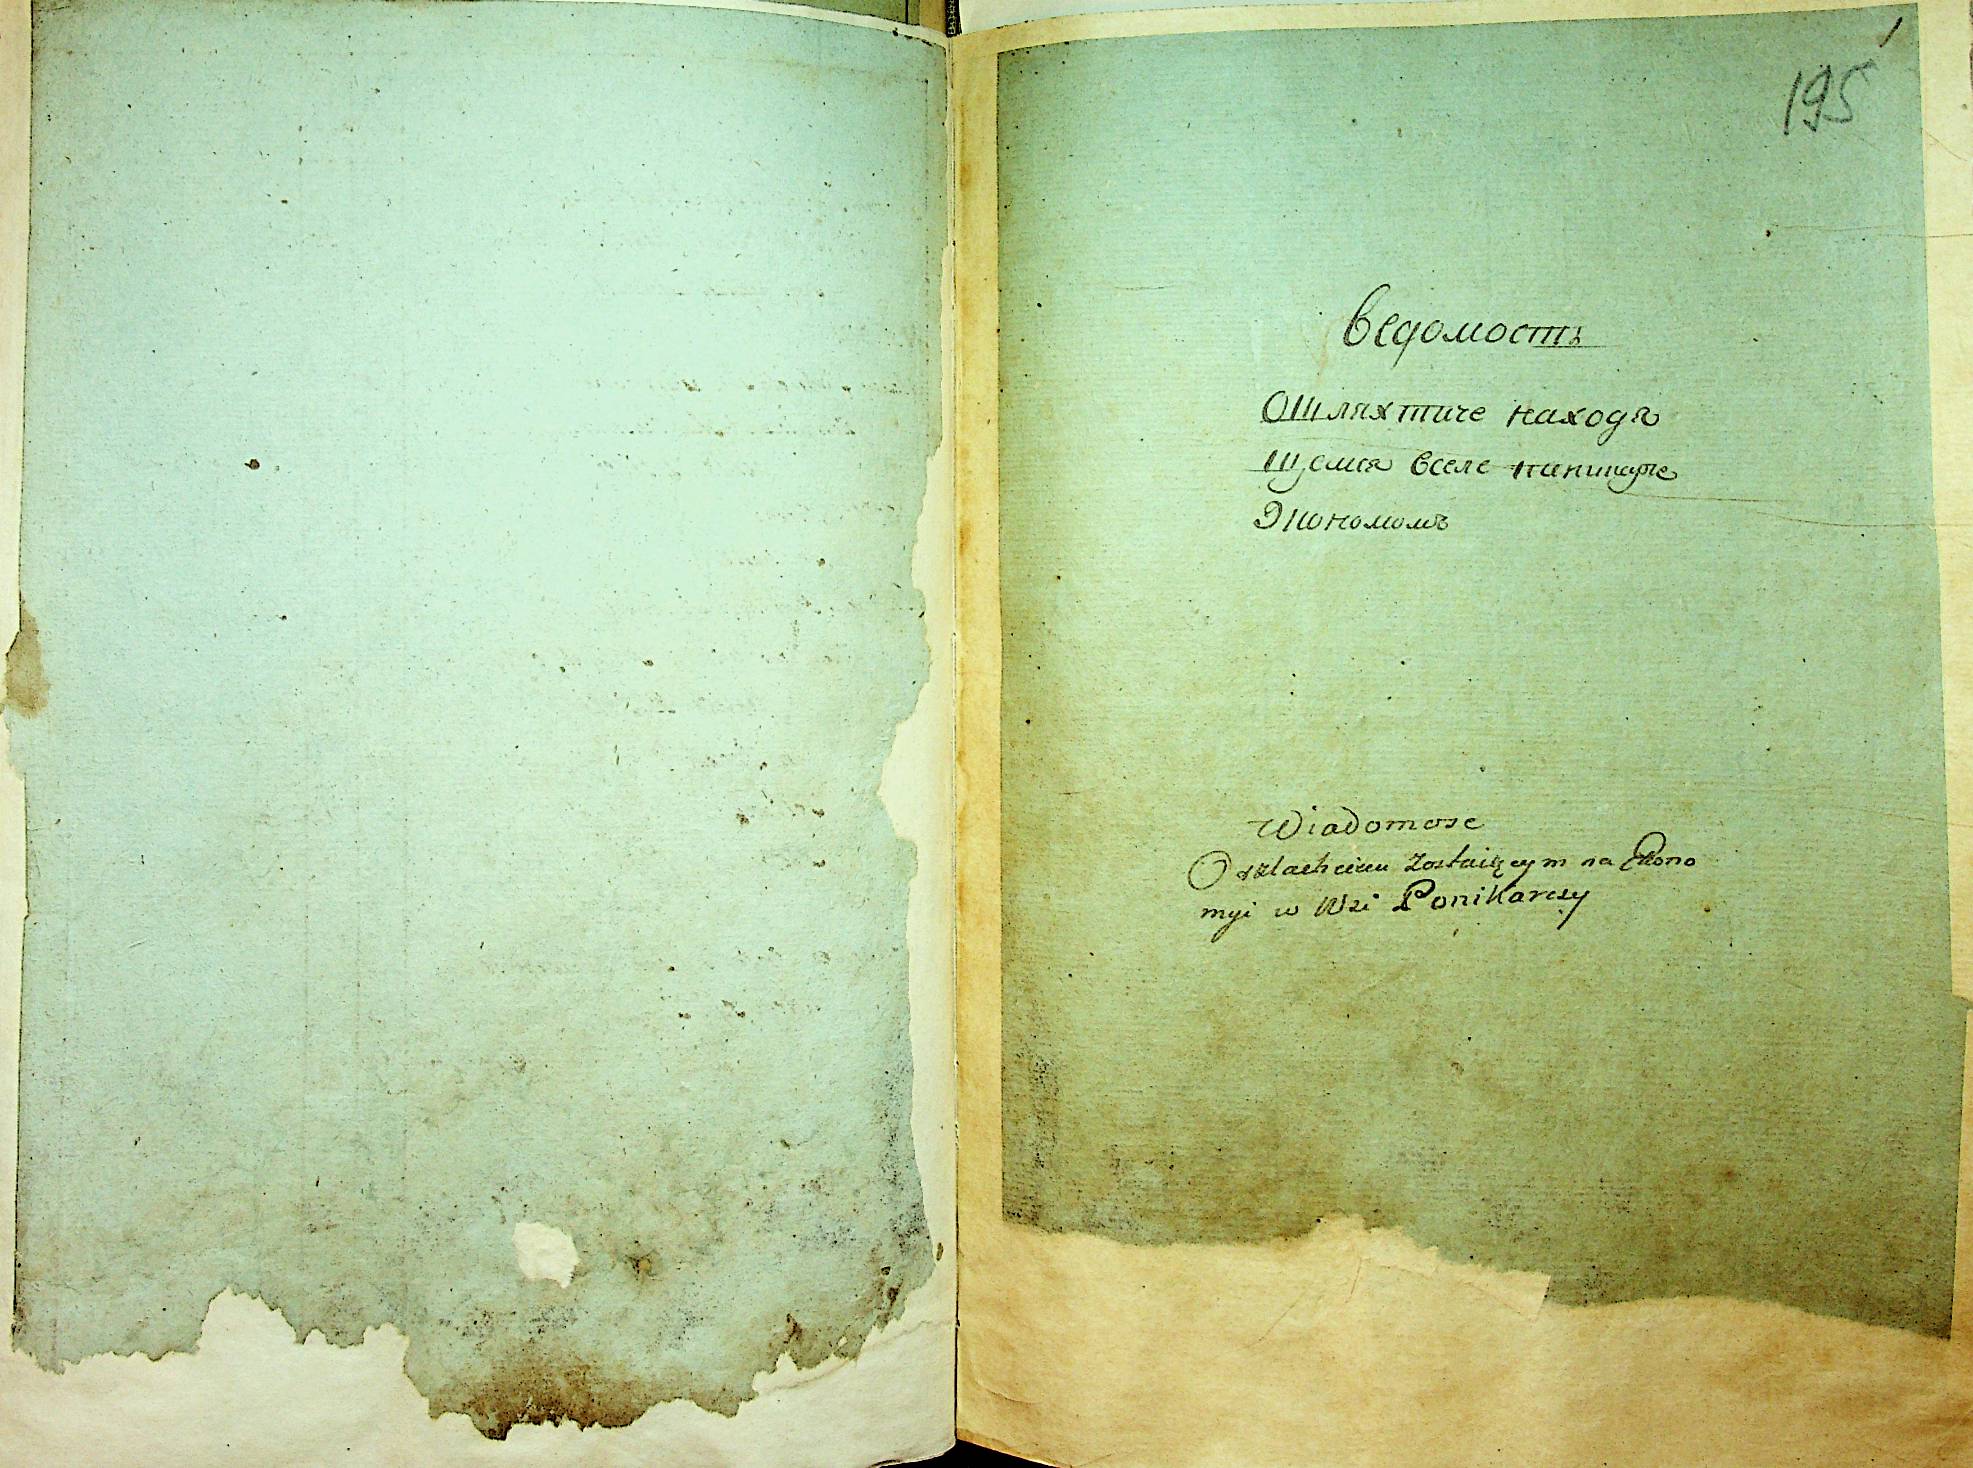 195
Ведомость
О Шляхтиче находя
щемся вселе
Экономомъ
Wiadomosc
O szlachcicu Zostaiącym na Ekono
myi w Wsi Ponikarczy